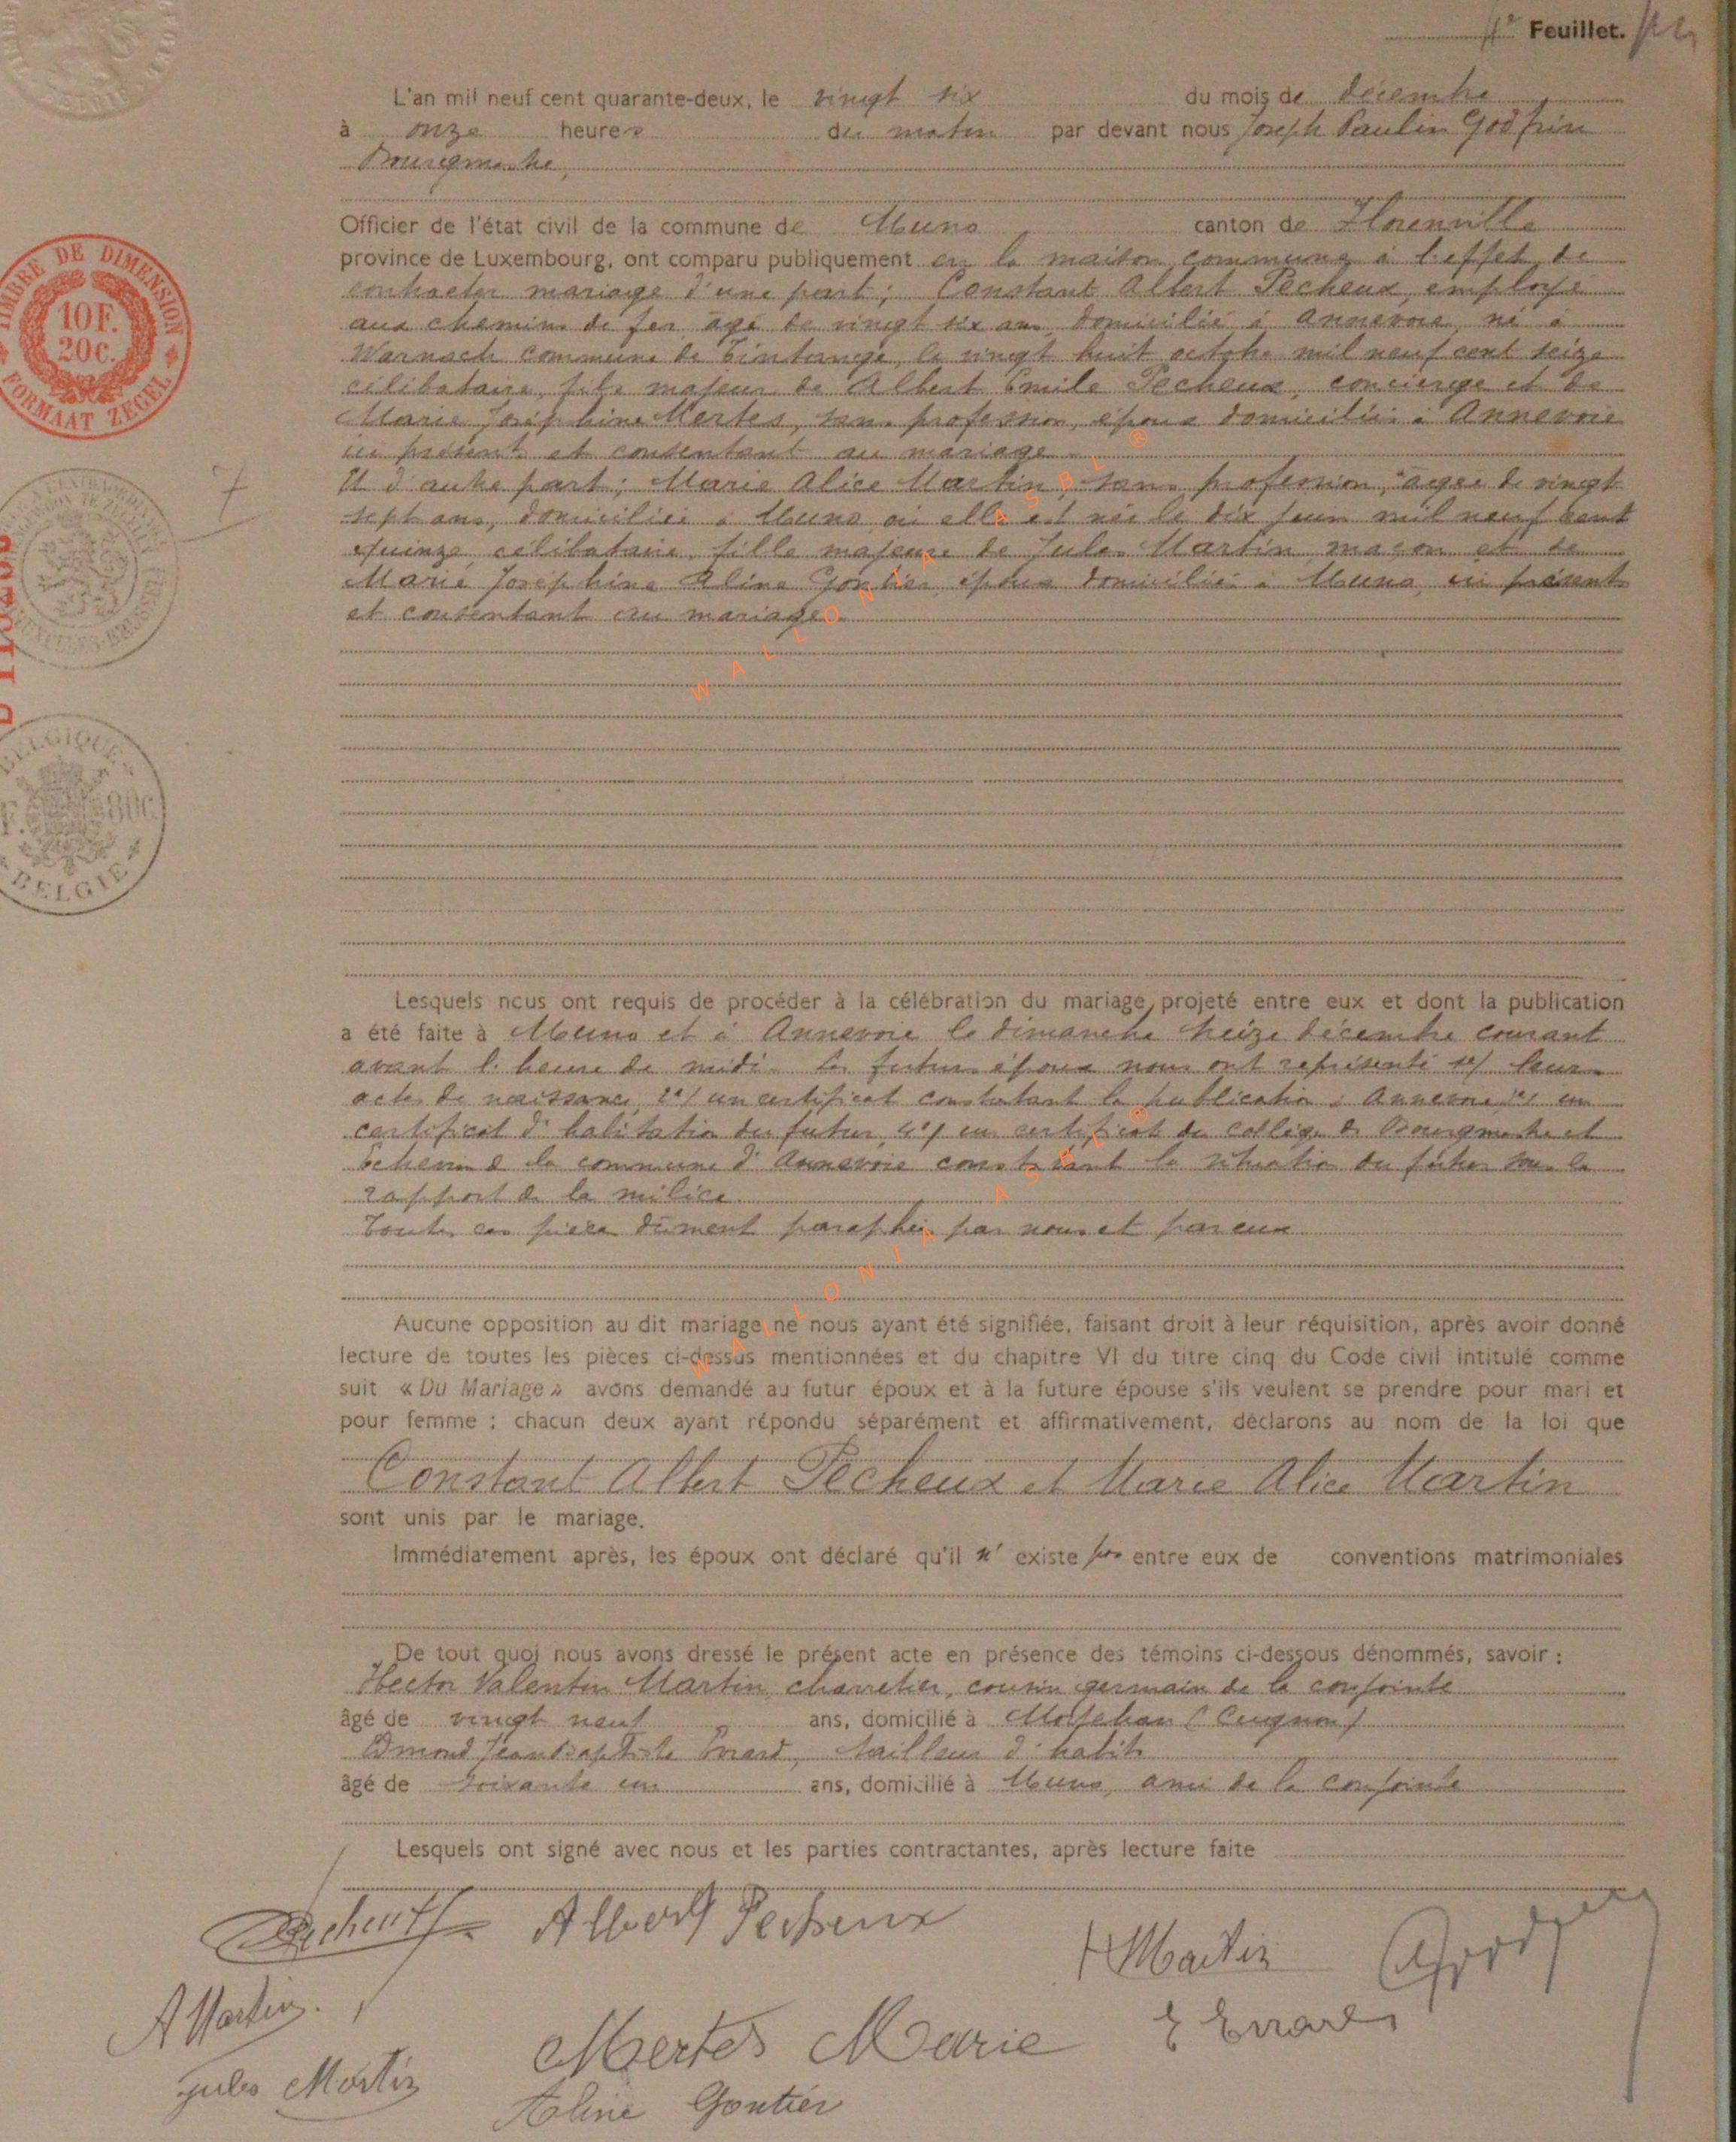 Feuillet.
L'an mil neuf cent quarante-deux, le vingt six du mois de décembre
à onze heures du matin par devant nous Joseph Paulin Godfrin
Bourgmestre,
Officier de l'état civil de la commune de Muno canton de Florenville
province de Luxembourg, ont comparu publiquement en la maison commune à l'effet de
contracter mariage d'une part; Constant Albert Pecheux, employé
aux chemins de fer âgé de vingt six ans domicilié à Annevoie, né à
Warnach commune de Tintange, le vingt huit octobre mil neuf cent seize
célibataire, fils majeur de Albert Emile Pecheux, concierge et de
Marie Joséphine Mertes, sans profession, époux domiciliés à Annevoie
ici présents et consentant au mariage
Et d'autre part; Marie Alice Martin, sans profession, âgée de vingt
sept ans, domiciliée à Muno où elle est née le dix juin mil neuf cent
quinze, célibataire, fille majeure de Jules Martin, maçon et de
Marie Joséphine Aline Gontier, époux domiciliés à Muno, ici présents
et consentant au mariage.
Lesquels nous ont requis de procéder à la célébration du mariage projeté entre eux et dont la publication
a été faite à Muno et à Annevoie le dimanche treize décembre courant
avant l'heure de midi. Les futurs époux nous ont représenté 1°/ leurs
actes de naissance, 2°/ un certificat constatant la publication à Annevoie, 3°/ un
certificat d'habitation du futur, 4°/ un certificat du collège des Bourgmestre et
échevins de la commune d'Annevoie constatant la situation du futur sous le
rapport de la milice.
Toutes ces pièces dûment paraphées par nous et par eux
Aucune opposition au dit mariage ne nous ayant été signifiée, faisant droit à leur réquisition, après avoir donné
lecture de toutes les pièces ci-dessus mentionnées et du chapitre VI du titre cinq du Code civil intitulé comme
suit « Du Mariage » avons demandé au futur époux et à la future épouse s'ils veulent se prendre pour mari et
pour femme ; chacun deux ayant répondu séparément et affirmativement, déclarons au nom de la loi que
Constant Albert Pecheux et Marie Alice Martin
sont unis par le mariage.
Immédiatement après, les époux ont déclaré qu'il n' existe pas entre eux de conventions matrimoniales
De tout quoi nous avons dressé le présent acte en présence des témoins ci-dessous dénommés, savoir :
Hector Valentin Martin, charretier, cousin germain de la conjointe
âgé de vingt neuf ans, domicilié à Mortehan (Cugnon)
Edmond Jean Baptiste Errard, tailleur d'habits
âgé de soixante un ans, domicilié à Muno, ami de la conjointe
Lesquels ont signé avec nous et les parties contractantes, après lecture faite
Pecheux Albert Pecheux
H Martin Godfrin
A Martin.
E Errard
Mertes Marie
Jules Martin
Aline Gontier
TIMBRE DE DIMENSION
10 F.
20 C.
FORMAAT ZEGEL
7
BELGIQUE
80C
BELGIE
WALLONIA ASBL ®
WALLONIA ASBL ®